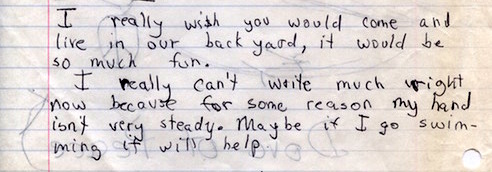 I really wish you would come and
live in our back yard, it would be
so much fun.
I really can't write much wright
now because for some reason my hand
isn't very steady. Maybe if I go swim-
ming it will help.